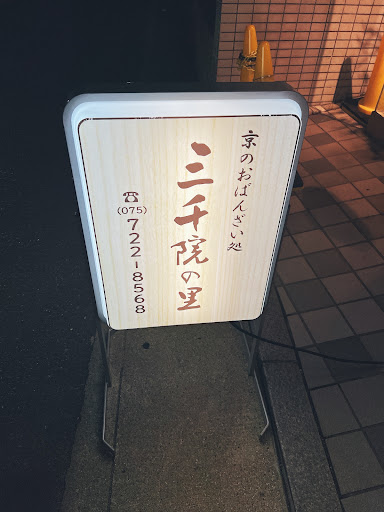 京のおばんざい処
三千院の里
☎
(075)
722-8568